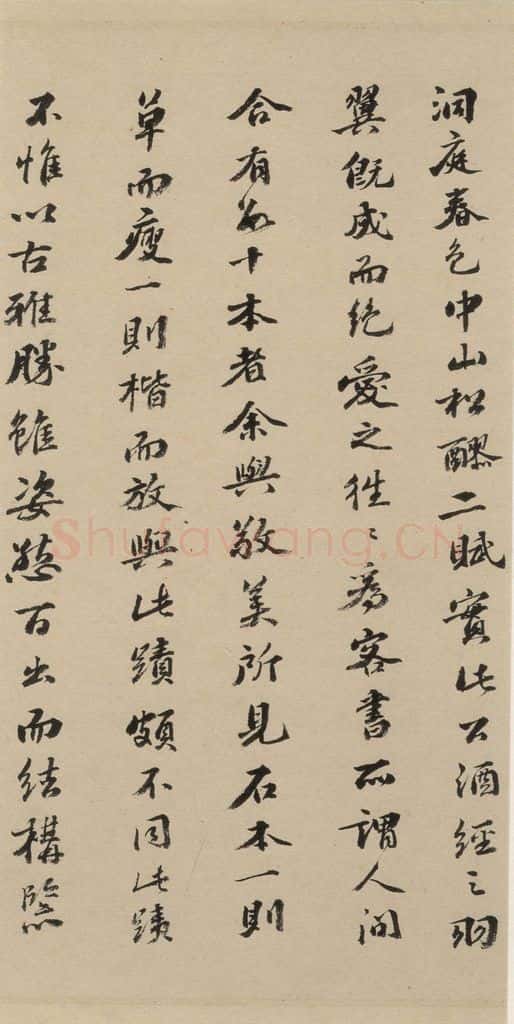 洞庭春色中山松醪二賦實此公酒經之羽
翼既成而絶愛之往〻為客書所謂人間
合有數十本者余與敬美所見石本一則
草而瘦一則楷而放與此蹟頗不同此蹟
不惟以古雅勝雖姿態百出而結構緊
Shufawang.CN